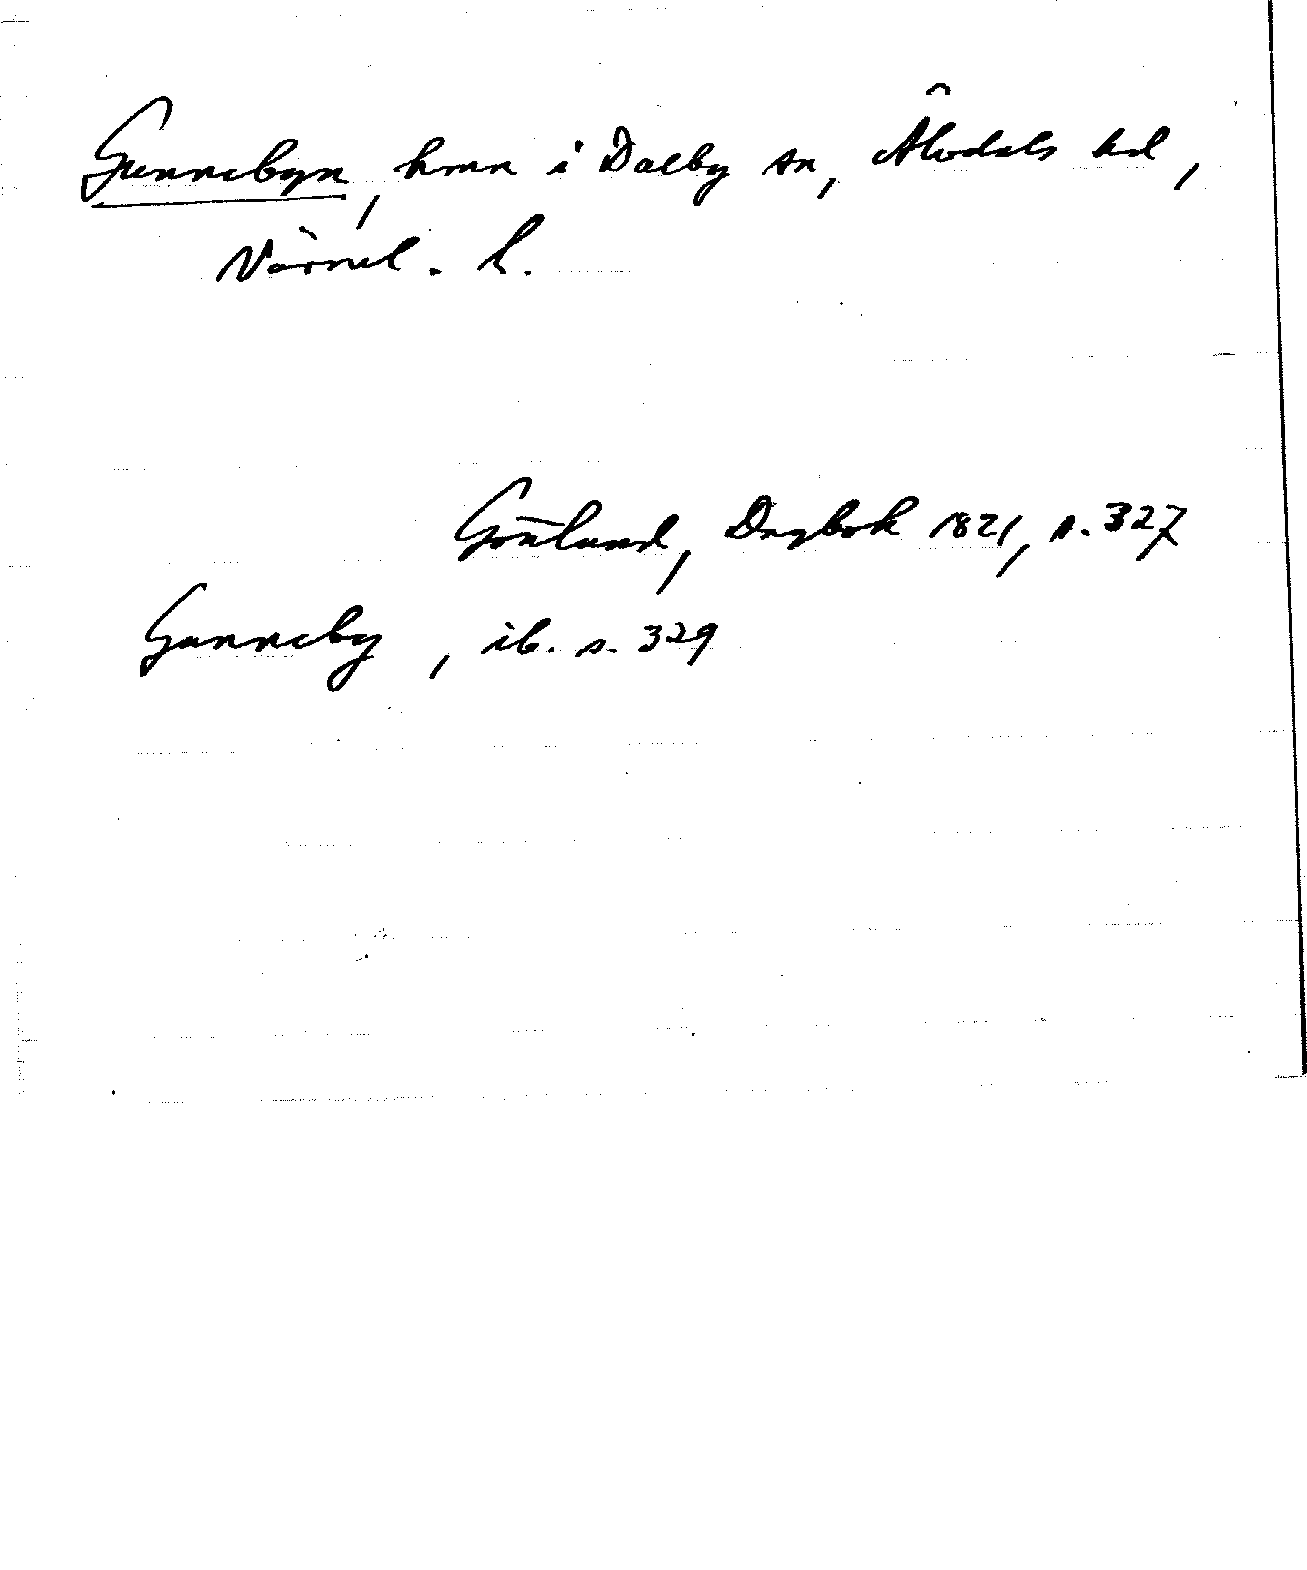 Gunnebyn, hmn i Dalby sn, Älvdals hd,
Värml. l.
Gottlund, Dagbok 1821, s. 327
Gunneby, ib. s. 329